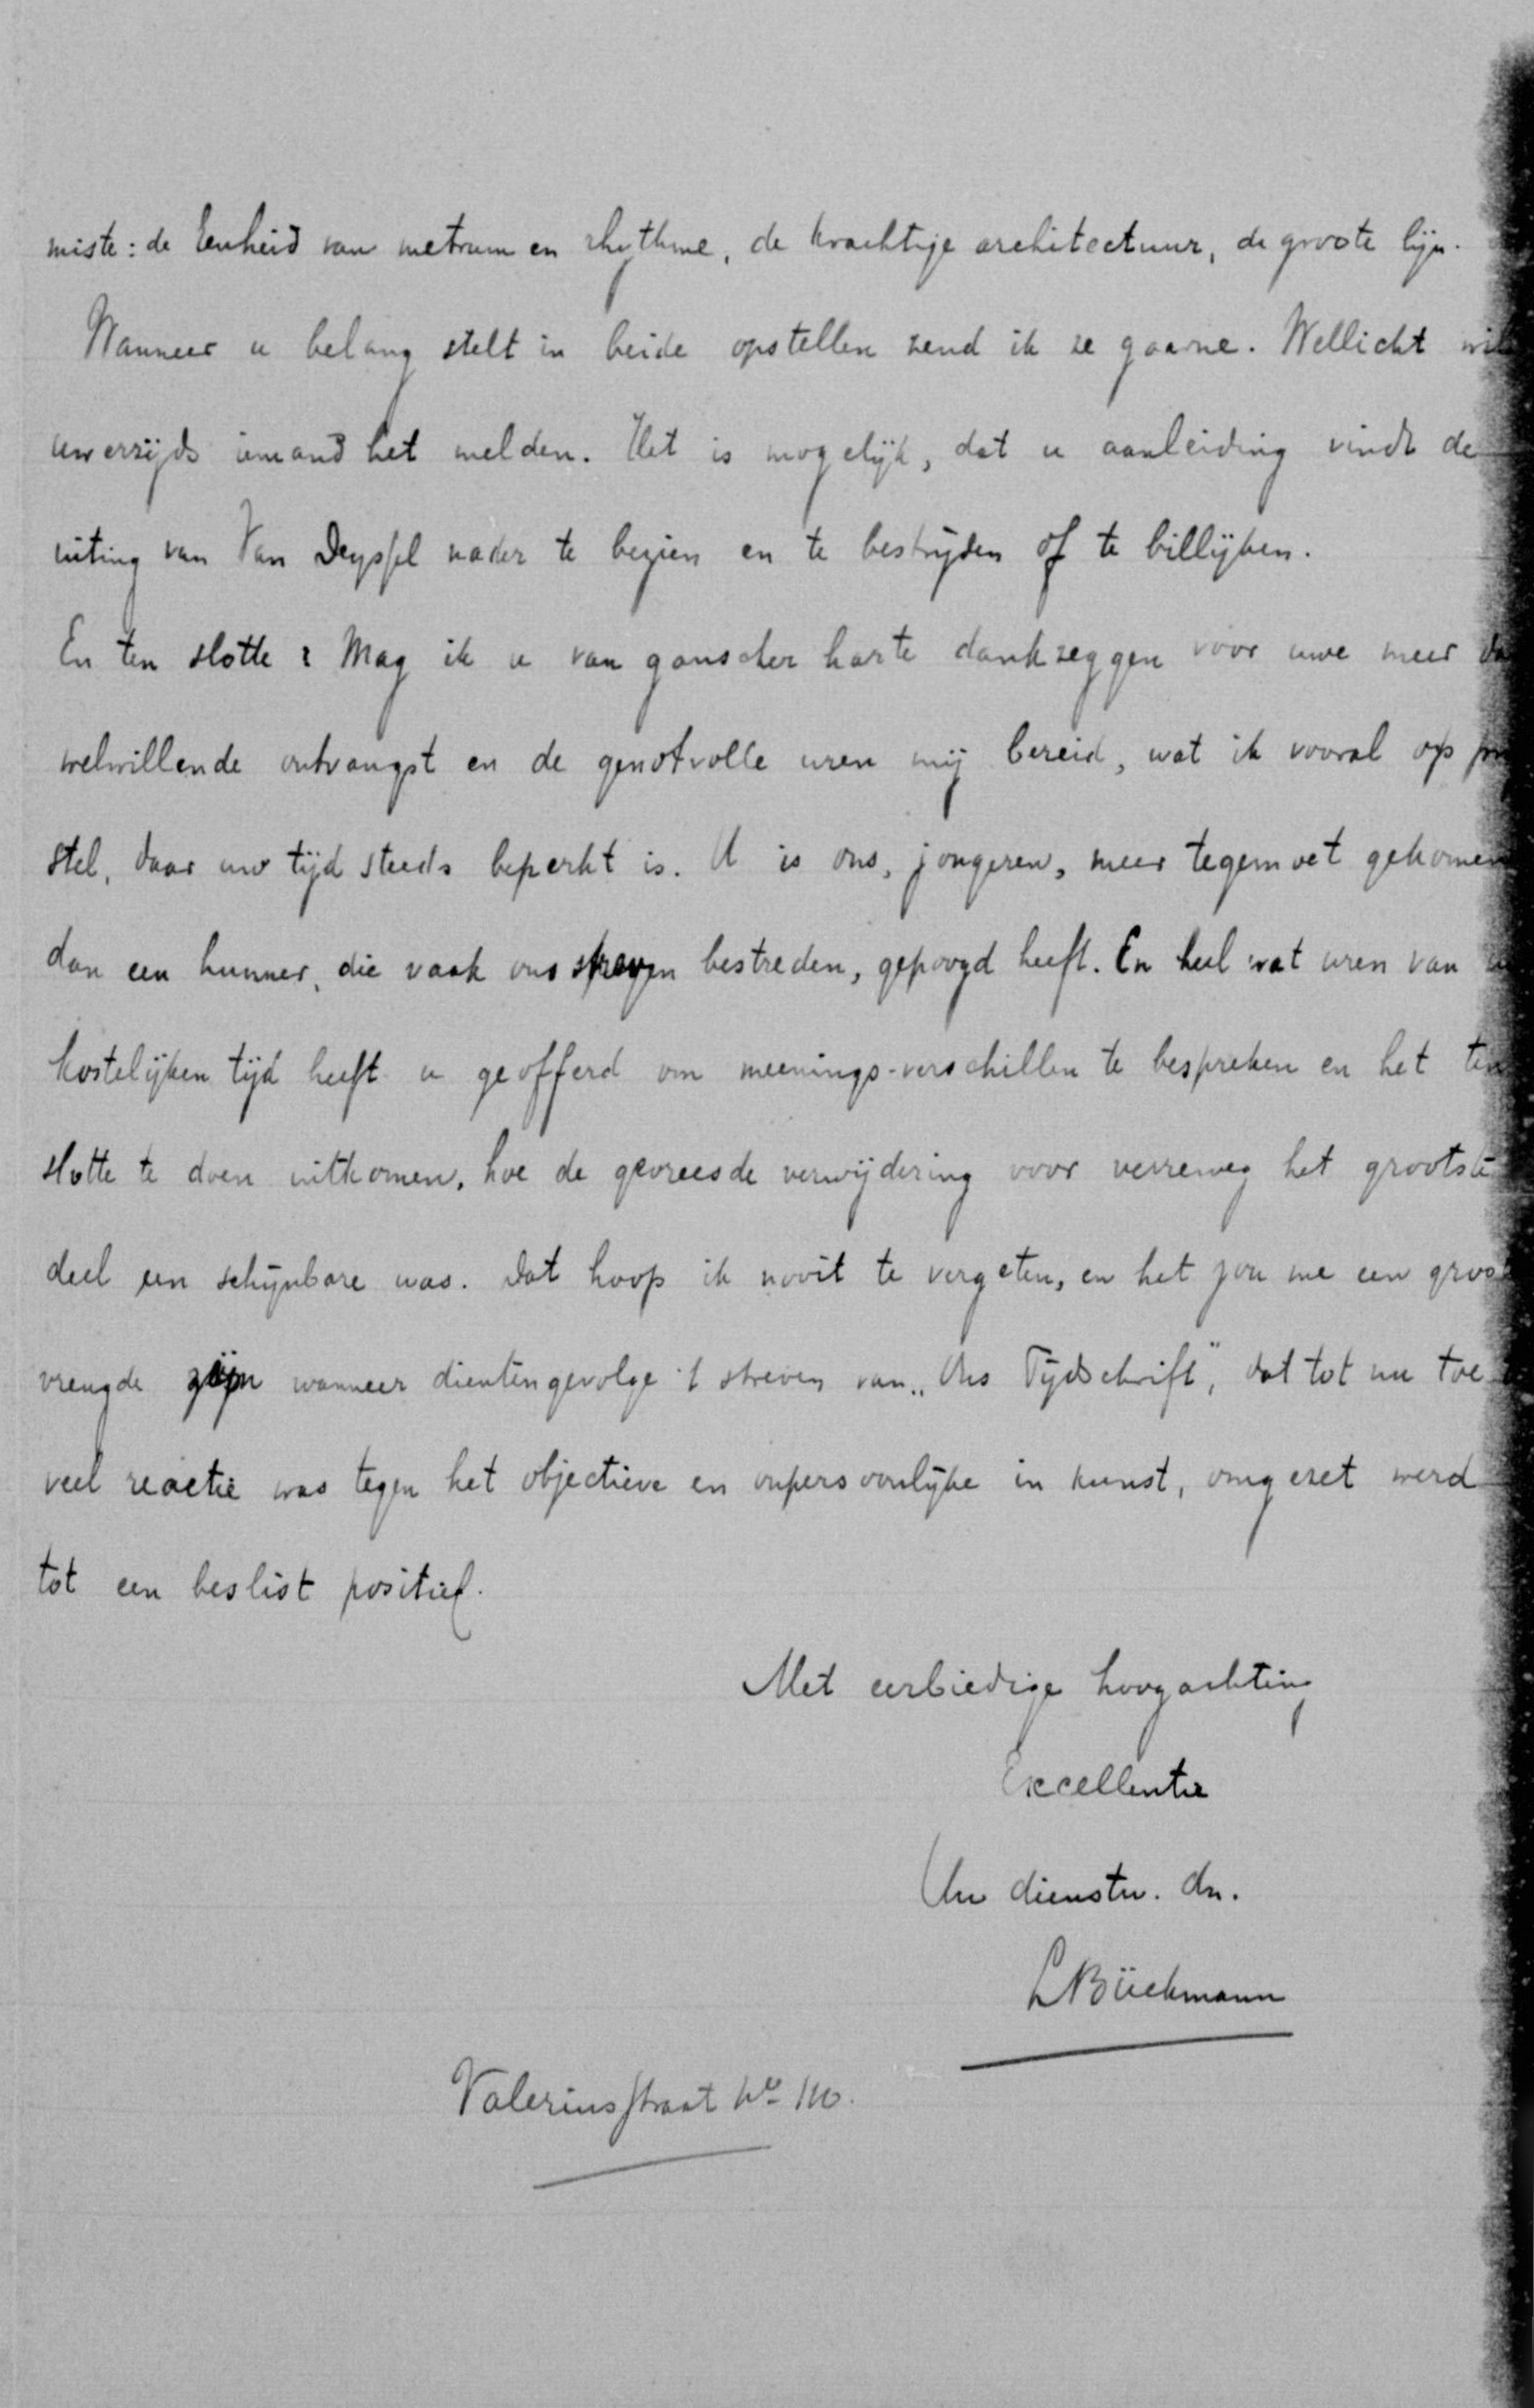 miste: de Eenheid van metrum en rhythme, de krachtige architectuur, de groote lijn.
Wanneer u belang stelt in beide opstellen zend ik ze gaarne. Wellicht wil
uwerzijds iemand het melden. Het is mogelijk, dat u aanleiding vindt de
uiting van Van Deyssel nader te bezien en te bestrijden of te billijken.
En ten slotte: Mag ik u van ganscher harte dankzeggen voor uwe meer da
welwillende ontvangst en de genotvolle uren mij bereid, wat ik vooral op pr
stel, daar uw tijd steeds beperkt is. U is ons, jongeren, meer tegemoet gekomen
dan een hunner, die vaak ons streven bestreden, gepoogd heeft. En heel wat uren van
kostelijken tijd heeft u geofferd om meenings-verschillen te bespreken en het ten
slotte te doen uitkomen, hoe de gevreesde verwijdering voor verreweg het grootste
deel een schijnbare was. Dat hoop ik nooit te vergeten, en het zou me een groot
vreugde zijn wanneer dientengevolge 't streven van „Ons Tijdschrift", dat tot nu toe
veel reactie was tegen het objectieve en onpersoonlijke in kunst, omgezet werd
tot een beslist positief.
Met eerbiedige hoogachting
Excellentie
Uw dienstw. dn.
L Bückmann
Valeriusstraat No